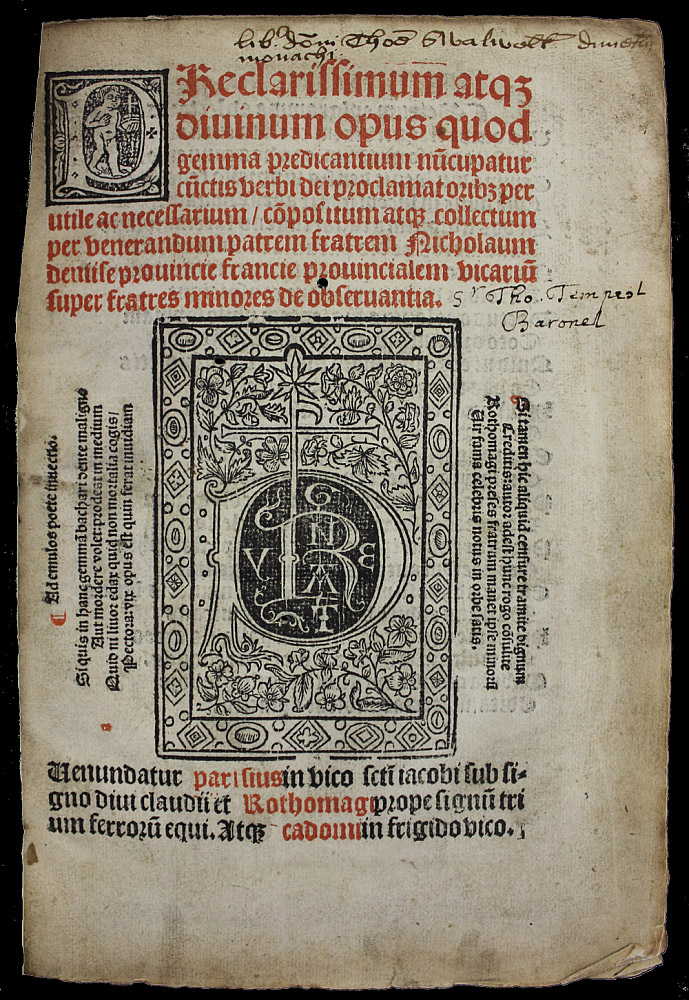 lib. dõni Thoẽ Swalwell
monachi
PReclarissimum atqꝫ
diuinum opus quod
gemma predicantium nũcupatur
cũctis verbi dei proclamatoribꝫ per
utile ac necessarium / cõpositum atqꝫ collectum
per venerandum patrem fratrem Nicholaum
deniise prouincie francie prouincialem vicariũ
super fratres minores de obseruantia.
Sr Tho. Tempest
Baronet
Ad emulos poete inuectio.
Si quis in hanc gemmã bachari dente maligno
Aut mordere volet: prodeat in medium
Quid ni liuor edax quid non mortalia cogis /
Pectora: vix opus est quin ferat inuidiam
Si tamen hic aliquid censure tramite dignum
Creditis: autor adest hunc rogo cõsulite
Rothomagi preses fratrum manet ipse minorũ
Vir fama celebris notus in orbe satis.
V R E
N
M
A
T
Uenundatur parisius in vico scti iacobi sub si-
gno diui claudii et Rothomagi prope signũ tri
um ferrorũ equi. Atqꝫ cadomi in frigido vico.